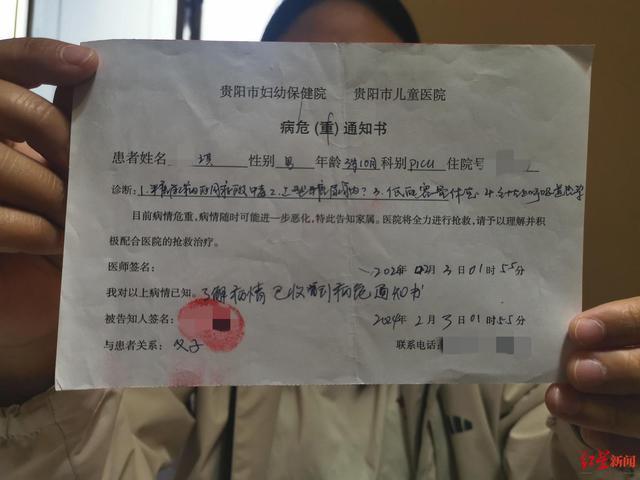 贵阳市妇幼保健院 贵阳市儿童医院
病危(重)通知书
患者姓名 琪 性别 男 年龄 3岁10月 科别 PICU 住院号
诊断:1. 2. 3.低血容量休克 4.
目前病情危重,病情随时可能进一步恶化,特此告知家属。医院将全力进行抢救,请予以理解并积
极配合医院的抢救治疗。
医师签名: 2024年 02月 3日 01时 55分
我对以上病情已知。了解病情 已收到病危通知书
被告知人签名: 2024年 2月 3日 01时 55分
与患者关系:父子 联系电话
红星新闻